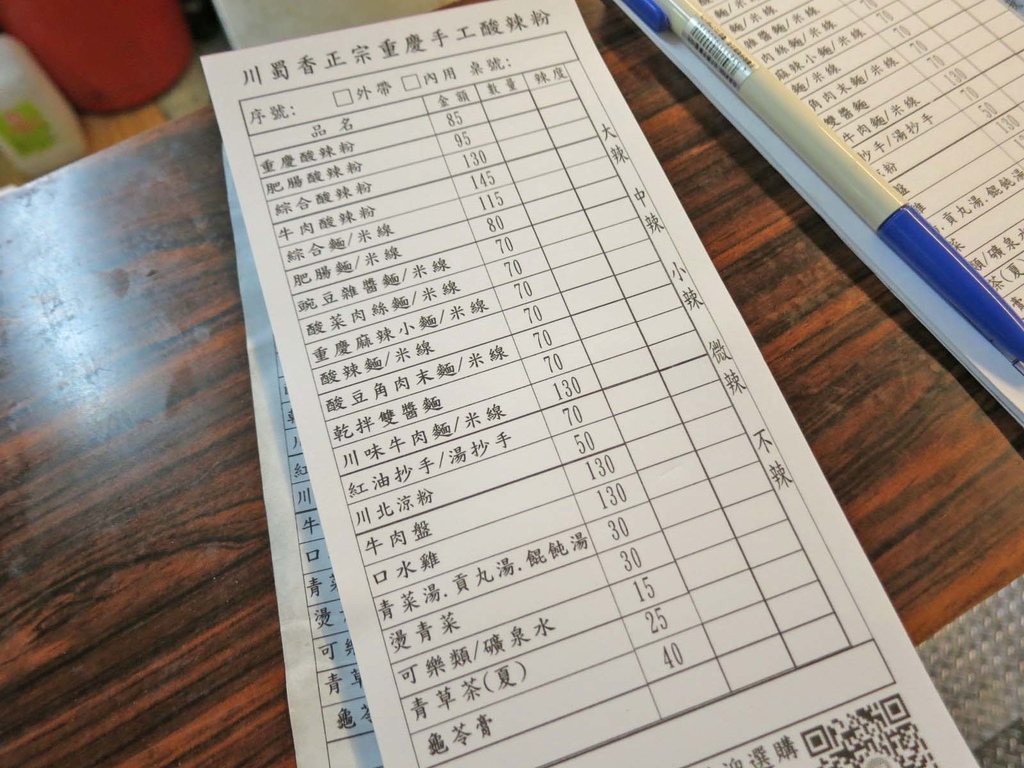 川蜀香正宗重慶手工酸辣粉
序號: □外帶 □內用 桌號:
品名 金額 數量 辣度
重慶酸辣粉 85
肥腸酸辣粉 95
綜合酸辣粉 130
牛肉酸辣粉 145
綜合麵/米線 115
肥腸麵/米線 80
豌豆雜醬麵/米線 70
酸菜肉絲麵/米線 70
重慶麻辣小麵/米線 70
酸辣麵/米線 70
酸豆角肉末麵/米線 70
乾拌雙醬麵 70
川味牛肉麵/米線 130
紅油抄手/湯抄手 70
川北涼粉 50
牛肉盤 130
口水雞 130
青菜湯.貢丸湯.餛飩湯 30
燙青菜 30
可樂類/礦泉水 15
青草茶(夏) 25
龜苓膏 40
大辣 中辣 小辣 微辣 不辣
選購
醬麵/米線 70
肉絲麵/米線 70
麻辣小麵/米線 70
麵/米線 70
角肉末麵/米線 70
雙醬麵 70
牛肉麵/米線 130
抄手/湯抄手 70
粉 50
盤 130
雞
.貢丸湯.餛飩湯
菜
類/礦泉水
茶(夏)
紅
川
牛
口
青菜
燙
可樂
青
龜苓